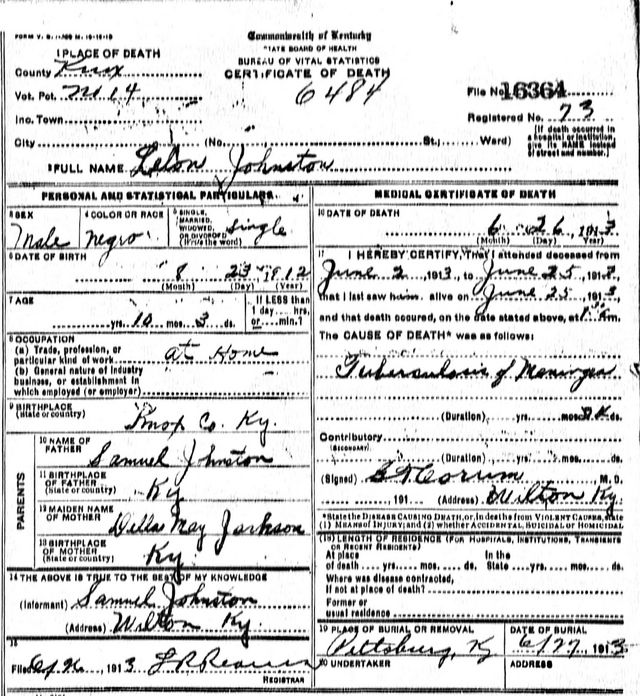 FORM V. S. 1-
Commonwealth of Kentucky
STATE BOARD OF HEALTH
BUREAU OF VITAL STATISTICS
CERTIFICATE OF DEATH
1 PLACE OF DEATH
County Knox
Vot. Pct. 14
6484
File No. 16364
Registered No. 73
Inc. Town
City (No. St.; Ward)
[If death occurred in a hospital or institution, give its NAME instead of street and number.]
2 FULL NAME Lelon Johnston
PERSONAL AND STATISTICAL PARTICULARS
3 SEX Male
4 COLOR OR RACE negro
5 SINGLE, MARRIED, WIDOWED, OR DIVORCED (Write the word) Single
6 DATE OF BIRTH
8 23 1912
(Month) (Day) (Year)
7 AGE
If LESS than 1 day hrs. or min.?
yrs. 10 mos. 3 ds.
8 OCCUPATION
(a) Trade, profession, or particular kind of work at Home
(b) General nature of industry business, or establishment in which employed (or employer)
9 BIRTHPLACE
(State or country) Knox Co. Ky.
PARENTS
10 NAME OF FATHER Samuel Johnston
11 BIRTHPLACE OF FATHER (State or country) Ky
12 MAIDEN NAME OF MOTHER Della May Jackson
13 BIRTHPLACE OF MOTHER (State or country) Ky.
14 THE ABOVE IS TRUE TO THE BEST OF MY KNOWLEDGE
(Informant) Samuel Johnston
(Address) Wilton Ky
15
Filed 1913
REGISTRAR
MEDICAL CERTIFICATE OF DEATH
16 DATE OF DEATH
6 26 1913
(Month) (Day) (Year)
17 I HEREBY CERTIFY, That I attended deceased from
June 2 1913, to June 25 191
that I last saw him alive on June 25 1913,
and that death occured, on the date stated above, at m.
The CAUSE OF DEATH* was as follows:
Tuberculosis of Meninges
(Duration) yrs. mos. ds.
Contributory
(SECONDARY)
(Duration) yrs. mos. ds.
(Signed) Corum M. D.
191 (Address) Wilton Ky.
*State the DISEASE CAUSING DEATH, or, in deaths from VIOLENT CAUSES, state (1) MEANS OF INJURY; and (2) whether ACCIDENTAL, SUICIDAL OR HOMICIDAL
(18) LENGTH OF RESIDENCE (FOR HOSPITALS, INSTITUTIONS, TRANSIENTS OR RECENT RESIDENTS)
At place of death yrs. mos. ds. In the State yrs. mos. ds.
Where was disease contracted, If not at place of death?
Former or usual residence
19 PLACE OF BURIAL OR REMOVAL
Pittsburg, Ky
DATE OF BURIAL
6/27 1913
20 UNDERTAKER
ADDRESS